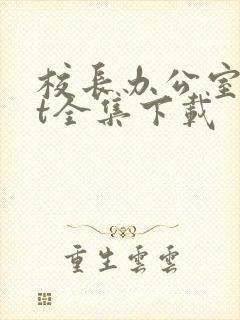 校长办公室
t全集下载
重生雲雲